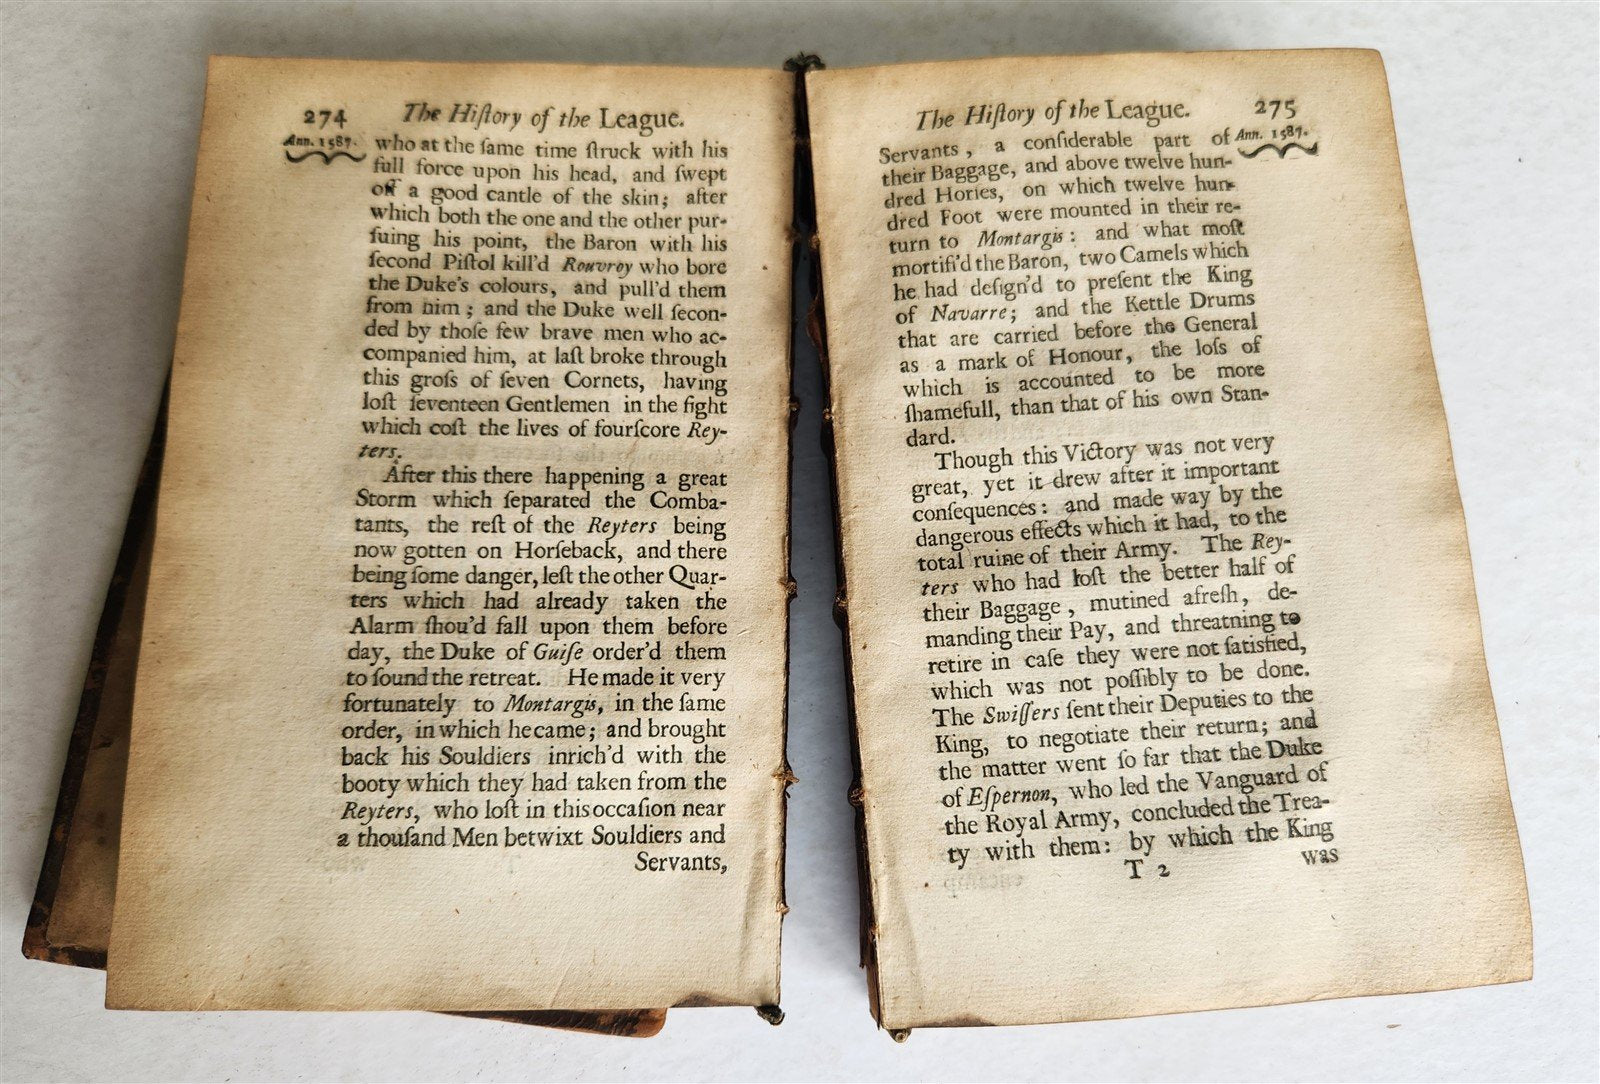 274 The Hiſtory of the League.
Ann. 1587.
who at the ſame time ſtruck with his
full force upon his head, and ſwept
off a good cantle of the skin; after
which both the one and the other pur-
ſuing his point, the Baron with his
ſecond Piſtol kill'd Rouvroy who bore
the Duke's colours, and pull'd them
from him; and the Duke well ſecon-
ded by thoſe few brave men who ac-
companied him, at laſt broke through
this groſs of ſeven Cornets, having
loſt ſeventeen Gentlemen in the fight
which coſt the lives of fourſcore Rey-
ters.
After this there happening a great
Storm which ſeparated the Comba-
tants, the reſt of the Reyters being
now gotten on Horſeback, and there
being ſome danger, leſt the other Quar-
ters which had already taken the
Alarm ſhou'd fall upon them before
day, the Duke of Guiſe order'd them
to ſound the retreat. He made it very
fortunately to Montargis, in the ſame
order, in which he came; and brought
back his Souldiers inrich'd with the
booty which they had taken from the
Reyters, who loſt in this occaſion near
a thouſand Men betwixt Souldiers and
Servants,
The Hiſtory of the League. 275
Ann. 1587.
Servants, a conſiderable part of
their Baggage, and above twelve hun-
dred Horſes, on which twelve hun-
dred Foot were mounted in their re-
turn to Montargis: and what moſt
mortifi'd the Baron, two Camels which
he had deſign'd to preſent the King
of Navarre; and the Kettle Drums
that are carried before the General
as a mark of Honour, the loſs of
which is accounted to be more
ſhamefull, than that of his own Stan-
dard.
Though this Victory was not very
great, yet it drew after it important
conſequences: and made way by the
dangerous effects which it had, to the
total ruine of their Army. The Rey-
ters who had loſt the better half of
their Baggage, mutined afreſh, de-
manding their Pay, and threatning to
retire in caſe they were not ſatisfied,
which was not poſſibly to be done.
The Swiſſers ſent their Deputies to the
King, to negotiate their return; and
the matter went ſo far that the Duke
of Eſpernon, who led the Vanguard of
the Royal Army, concluded the Trea-
ty with them: by which the King
T 2 was